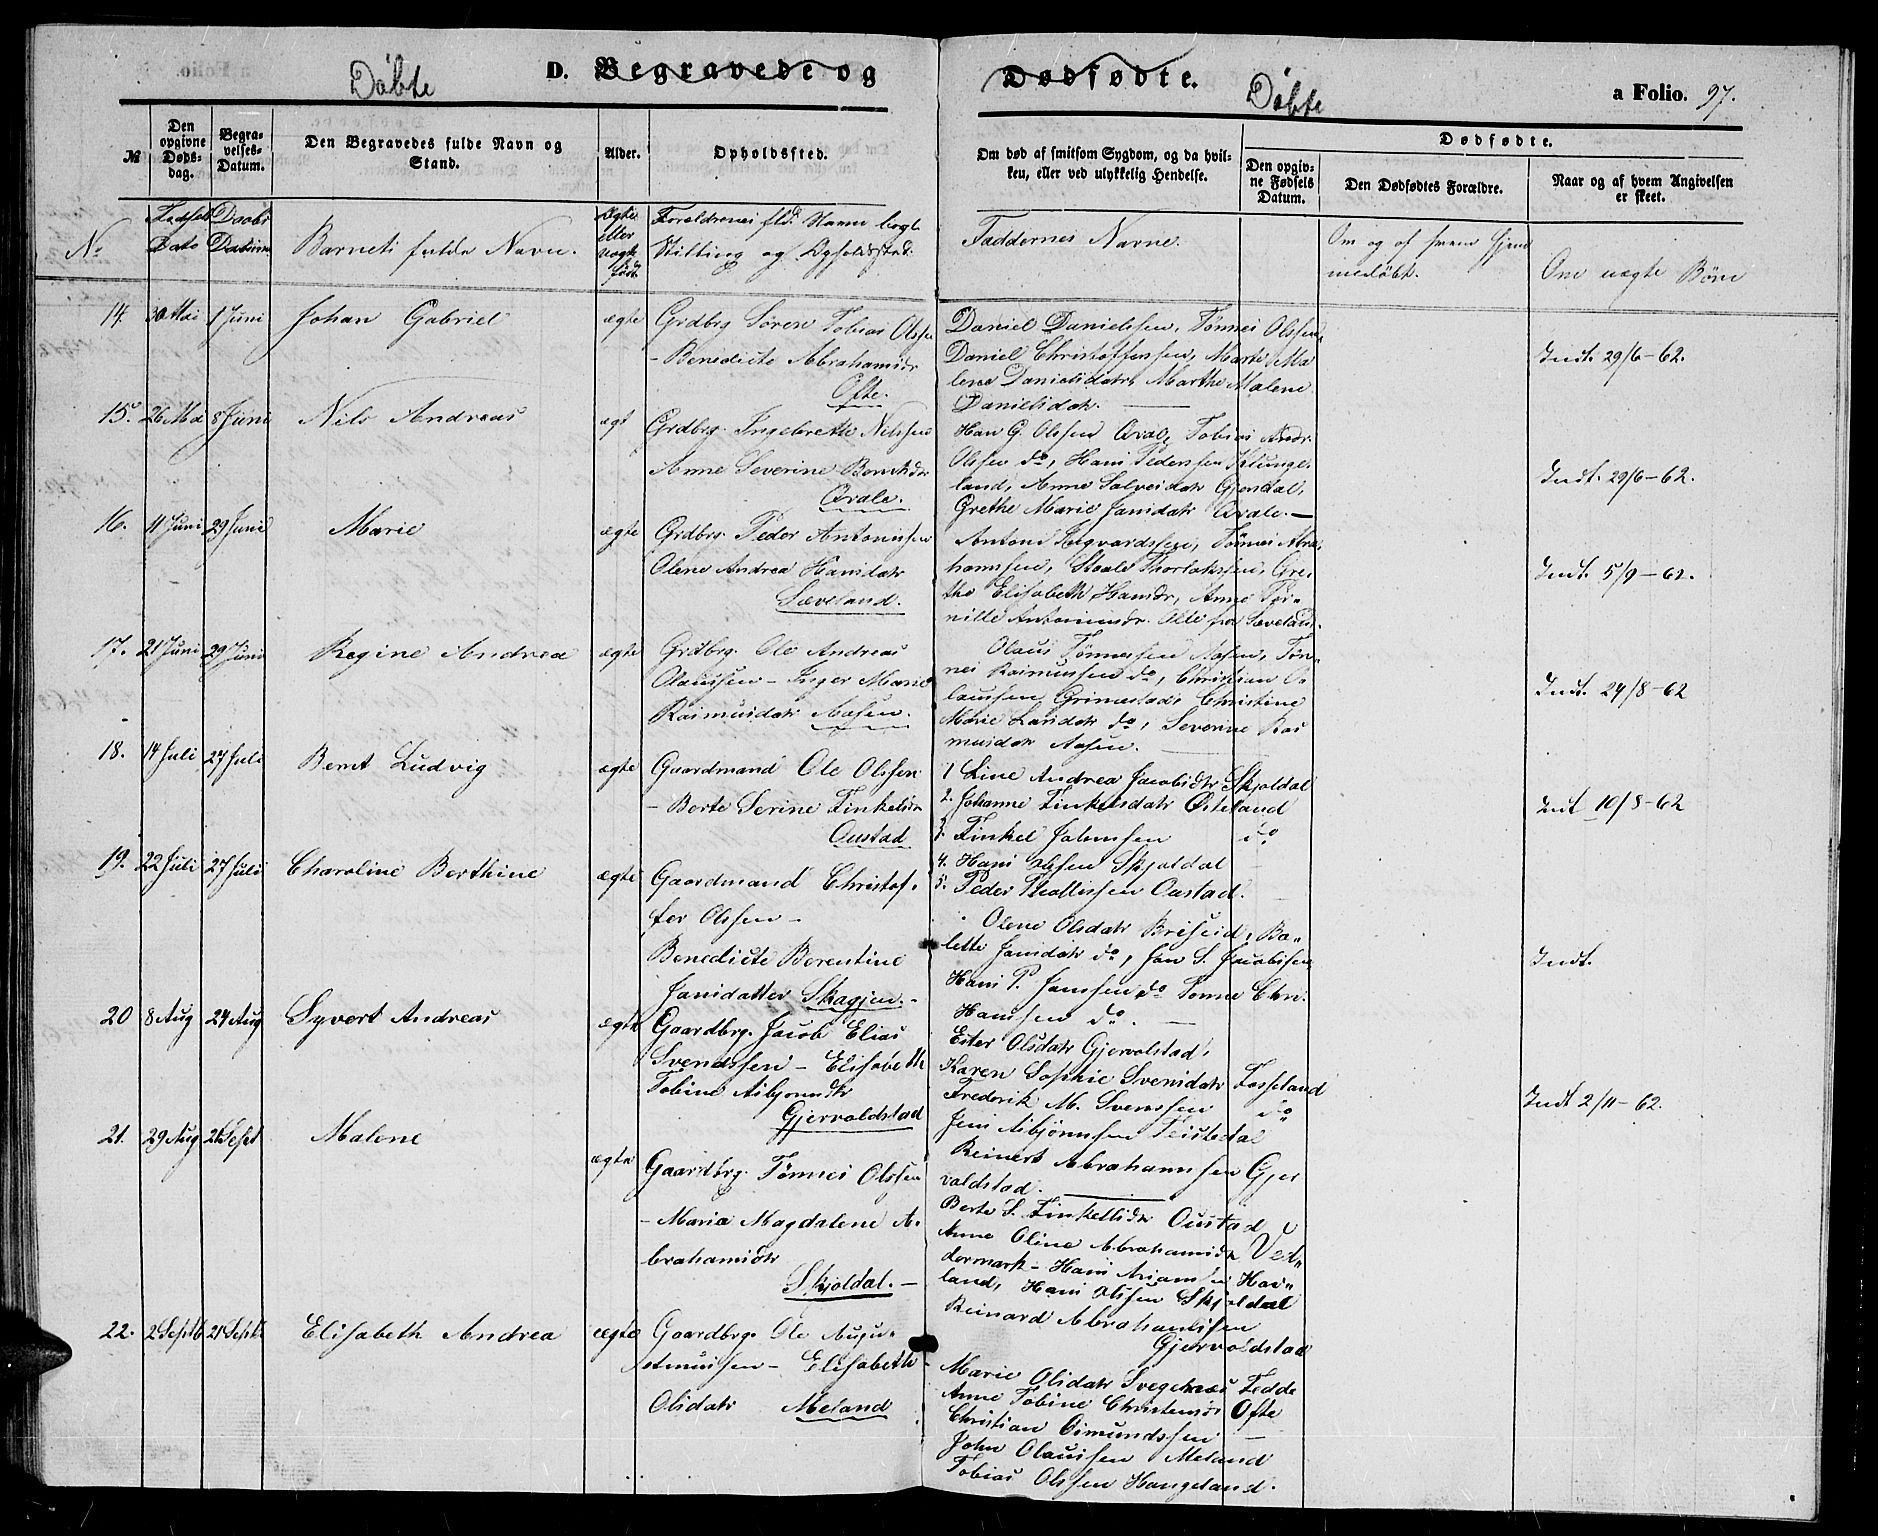 Døbte
D. Begravede og Dødfødte.
Døbte
a Folio. 97.
№
Den opgivne Døds-dag.
Begra-velses-Datum.
Den Begravedes fulde Navn og Stand.
Alder.
Opholdssted.
Om død af smitsom Sygdom, og da hvil-
ken, eller ved ulykkelig Hendelse.
Dødfødte.
Den opgiv-ne Fødsels Datum.
Den Dødfødtes Forældre.
Naar og af hvem Angivelsen er skeet.
No
Fødsels Dato
Daabs Datum
Barnets fulde Navn.
ægte eller uægte født
Forældrenes fld. Navne bogl.
Stilling og Opholdssted.
Faddernes Navne.
Om og af hvem hjem-
medøbt.
Om uægte Børn
14. 30 Mai 1 Juni Johan Gabriel ægte
Grdbrg Søren Tobias Olssen
- Benedicte Abrahamsdr
Ofte.
Daniel Danielssen, Tønnes Olssen,
Daniel Christofferssen, Marte Ma
lene Danielsdatr, Marthe Malene
Danielsdatr.
Indt. 29/6-62.
15. 26 Mai 8 Juni Nils Andreas ægt
Grdbrg. Ingebreth Nilssen
Anne Severine Berntsdr
Qvale.
Hans G. Olssen Qvale, Tobias Andr.
Olssen do, Hans Pederssen Klunge-
land, Anne Salvesdatr Gjendal,
Grethe Marie Jansdatr Qvale.
Indt. 29/6-62.
16. 11 Juni 29 Juni Marie ægte
Grdbrg. Peder Antonissen
Olene Andrea Hansdatr
Sæveland.
Antoni Sigvardssen, Tønnes Abra-
hamssen, Staale Thorlakssen, Gre-
the Elisabeth Hansdr, Anne Per-
nille Antoniusdr. Alle fra Sæveland.
Indt. 5/9-62.
17. 21 Juni 29 Juni Regine Andrea ægte
Grdbrg. Ole Andreas
Olaussen - Inger Marie
Rasmusdatr Aasen.
Olaus Tønnessen Aasen, Tøn-
nes Rasmussen do, Christian O-
laussen Grimestad, Christine
Marie Larsdatr do, Severine Ras
musdatr Aasen.
Indt. 24/8-62
18. 14 Juli 27 Juli Bernt Ludvig ægte
Gaardmand Ole Olssen
- Berte Serine Finkelsdr
Oustad
1 Line Andrea Jacobsdtr Skjoldal
2. Johanne Finkelsdatr Østeland
3. Finkel Salmssen do
4. Hans Olssen Skjoldal
5. Peder Thollissen Oustad.
Indt 10/8-62
19. 22 Juli 27 Juli Charoline Berthine ægte
Gaardmand Christof-
fer Olssen -
Benedicte Berentine
Jansdatter Skagjen.-
Olene Olsdatr Briseid, Bo-
lette Jansdatr do, Jan S. Jacobssen,
Hans P. Janssen do Tønne Chri.
Hanssen do.
Indt.
20 8 Aug 24 Aug Syvert Andreas ægte
Gaardbrg. Jacob Elias
Svendssen - Elisabeth
Tobine Asbjørnsdtr
Gjervoldstad
Ester Olsdatr Gjervolstad,
Karen Sophie Svensdatr Fosseland
Frederik M. Svenssen do
Jens Asbjørnssen Teistedal
Reinert Abrahamssen Gjer
voldstad.
Indt 2/11-62.
21. 29 Aug 21 Sept Malene ægte
Gaardbrg. Tønnes Olssen
- Maria Magdalene A-
brahamsdtr
Skjoldal.-
Berte S. Finkelsdtr Oustad
Anne Oline Abrahamsdtr Ved-
dermark - Hans Ariansen Hav-
land, Hans Olssen Skjoldal
Reinard Abrahamssen
Gjervoldstad
22. 2 Septb 21 Sept. Elisabeth Andrea ægte
Gaardbrg. Ole Augu-
stinussen - Elisabeth
Olsdatr Meland
Marie Olsdatr Svegenæs Fedde
Anne Tobine Christensdr Ofte
Christian Osmundssen -
John Olaussen Meland
Tobias Olssen Haugeland.